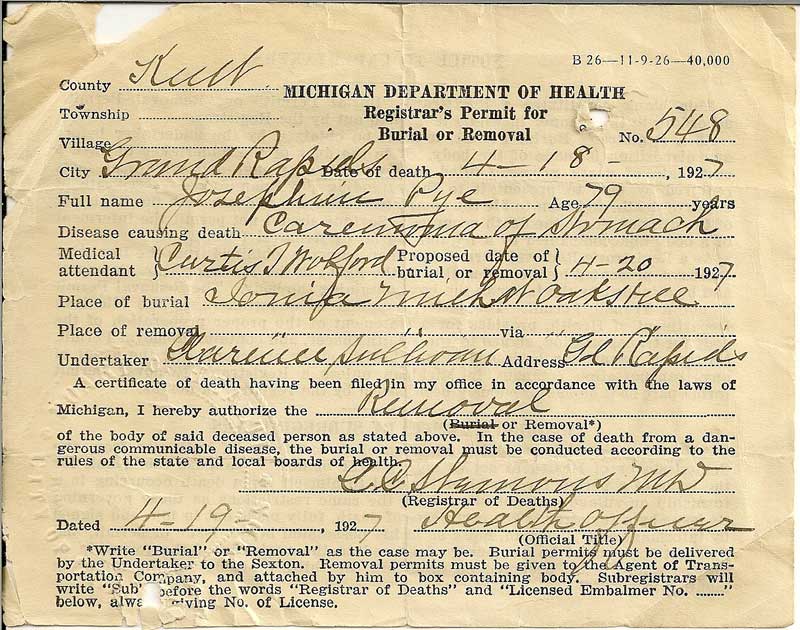 B 26—11-9-26—40,000
County Kent
MICHIGAN DEPARTMENT OF HEALTH
Township
Registrar's Permit for
Burial or Removal
No. 548
Village
City Grand Rapids Date of death 4-18-, 1927
Full name Josephine Pye Age 79 years
Disease causing death Carcinoma of Stomach
Medical attendant } Curtis Wolford Proposed date of burial or removal } 4-20 1927
Place of burial Ionia Mich
Place of removal " via "
Undertaker Clarence Sullivan Address Gd Rapids
A certificate of death having been filed in my office in accordance with the laws of
Michigan, I hereby authorize the Removal
(Burial or Removal*)
of the body of said deceased person as stated above. In the case of death from a dan-
gerous communicable disease, the burial or removal must be conducted according to the
rules of the state and local boards of health.
C.C. Slemons MD
(Registrar of Deaths)
Dated 4-19-, 1927 Health Officer
(Official Title)
*Write "Burial" or "Removal" as the case may be. Burial permits must be delivered
by the Undertaker to the Sexton. Removal permits must be given to the Agent of Trans-
portation Company, and attached by him to box containing body. Subregistrars will
write "Sub" before the words "Registrar of Deaths" and "Licensed Embalmer No. ........"
below, always giving No. of License.